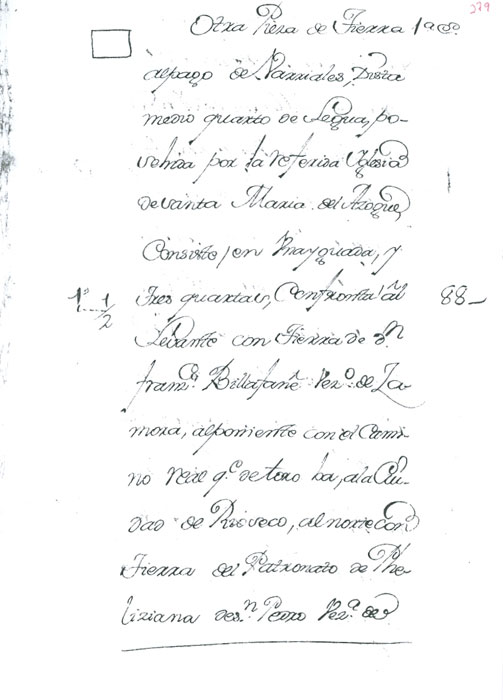 279
Otra Pieza de Tierra 1ª cd.
al pago de Narriales, Dista
medio quarto de Legua, po-
sehida por la referida Yglesia
de santa Maria del Azogue,
Consiste en Yguada, y
1ª 1/2 Tres quartas, Confronta al 88_
Levante con Tierra de Dn
franco. Billafañe Vezo. de Za-
mora, al poniente con el Cami-
no Real qe. de toro ba, a la Ciu-
dad de Rioseco, al norte con
Tierra del Patronato de Phe-
liziana de Sn. Pedro Veza. de